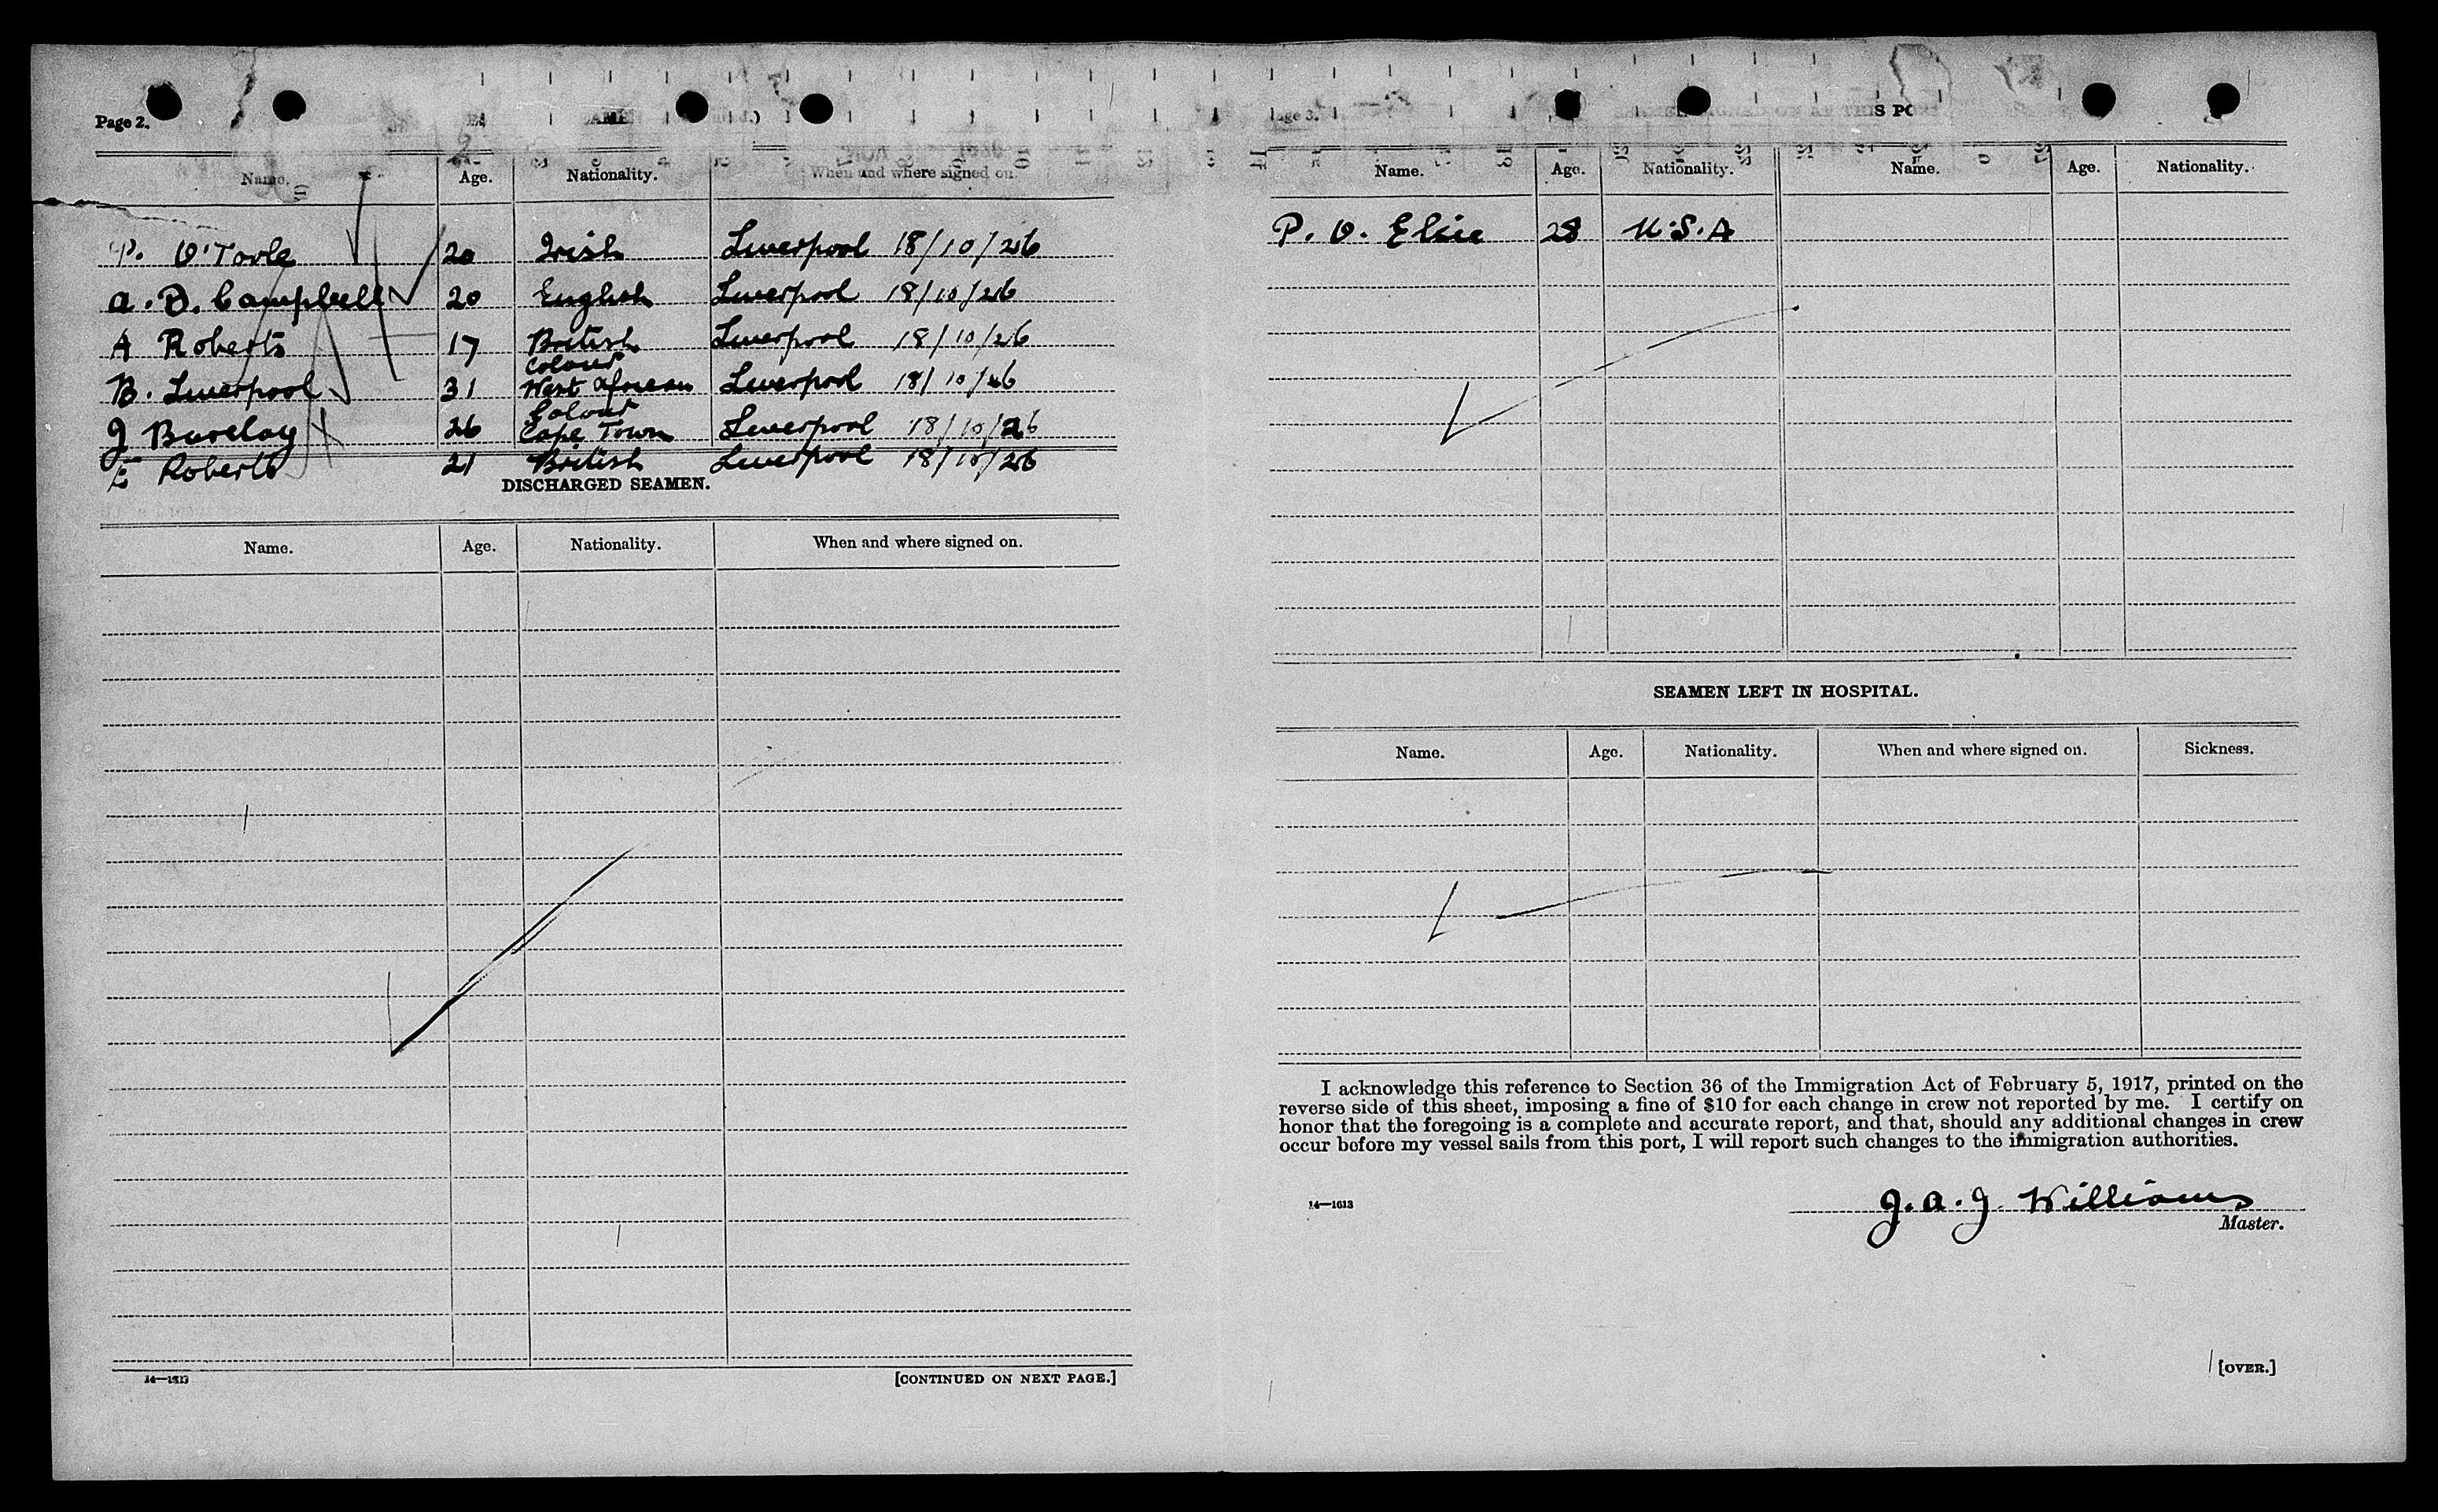 Page 2.
Name. Age. Nationality. When and where signed on.
P. O'Toole 20 Irish Liverpool 18/10/26
A. D. Campbell 20 English Liverpool 18/10/26
A Roberts 17 British Liverpool 18/10/26
Colour
B. Liverpool 31 West African Liverpool 18/10/26
Colour
J Barclay 26 Cape Town Liverpool 18/10/26
E Roberts 21 British Liverpool 18/10/26
DISCHARGED SEAMEN.
Name. Age. Nationality. When and where signed on.
14—1613
[CONTINUED ON NEXT PAGE.]
Page 3.
S PO
Name. Age. Nationality. Name. Age. Nationality.
P. O. 28 U.S.A
SEAMEN LEFT IN HOSPITAL.
Name. Age. Nationality. When and where signed on. Sickness.
I acknowledge this reference to Section 36 of the Immigration Act of February 5, 1917, printed on the
reverse side of this sheet, imposing a fine of $10 for each change in crew not reported by me. I certify on
honor that the foregoing is a complete and accurate report, and that, should any additional changes in crew
occur before my vessel sails from this port, I will report such changes to the immigration authorities.
14—1613
J. A. J. Williams
Master.
[OVER.]